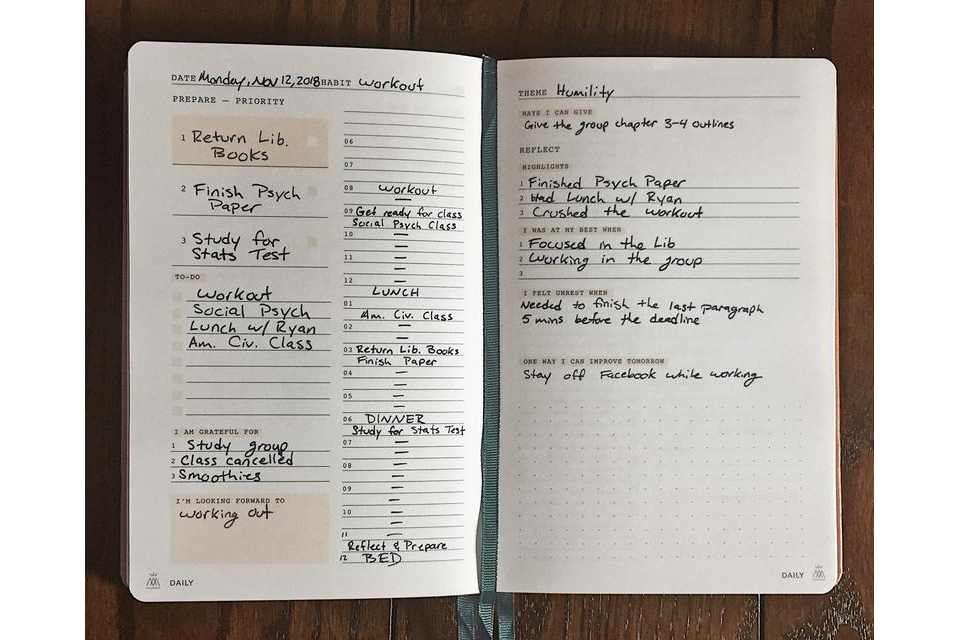 DATE Monday, Nov 12, 2018 HABIT Workout
PREPARE — PRIORITY
1 Return Lib.
Books
2 Finish Psych
Paper
3 Study for
Stats Test
TO-DO
Workout
Social Psych
Lunch w/ Ryan
Am. Civ. Class
I AM GRATEFUL FOR
1 Study group
2 Class cancelled
3 Smoothies
I'M LOOKING FORWARD TO
working out
DAILY
06
07
08 workout
—
09 Get ready for class
Social Psych Class
10 —
—
11 —
—
12 —
LUNCH
01 —
Am. Civ. Class
02 —
—
03 Return Lib. Books
Finish Paper
04 —
—
05 —
—
06 DINNER
Study for Stats Test
07 —
—
08 —
—
09 —
—
10 —
—
11 —
Reflect & Prepare
12 BED
THEME Humility
WAYS I CAN GIVE
Give the group chapter 3-4 outlines
REFLECT
HIGHLIGHTS
1 Finished Psych Paper
2 Had Lunch w/ Ryan
3 Crushed the workout
I WAS AT MY BEST WHEN
1 Focused in the Lib
2 Working in the group
3
I FELT UNREST WHEN
Needed to finish the last paragraph
5 mins before the deadline
ONE WAY I CAN IMPROVE TOMORROW
Stay off Facebook while working
DAILY